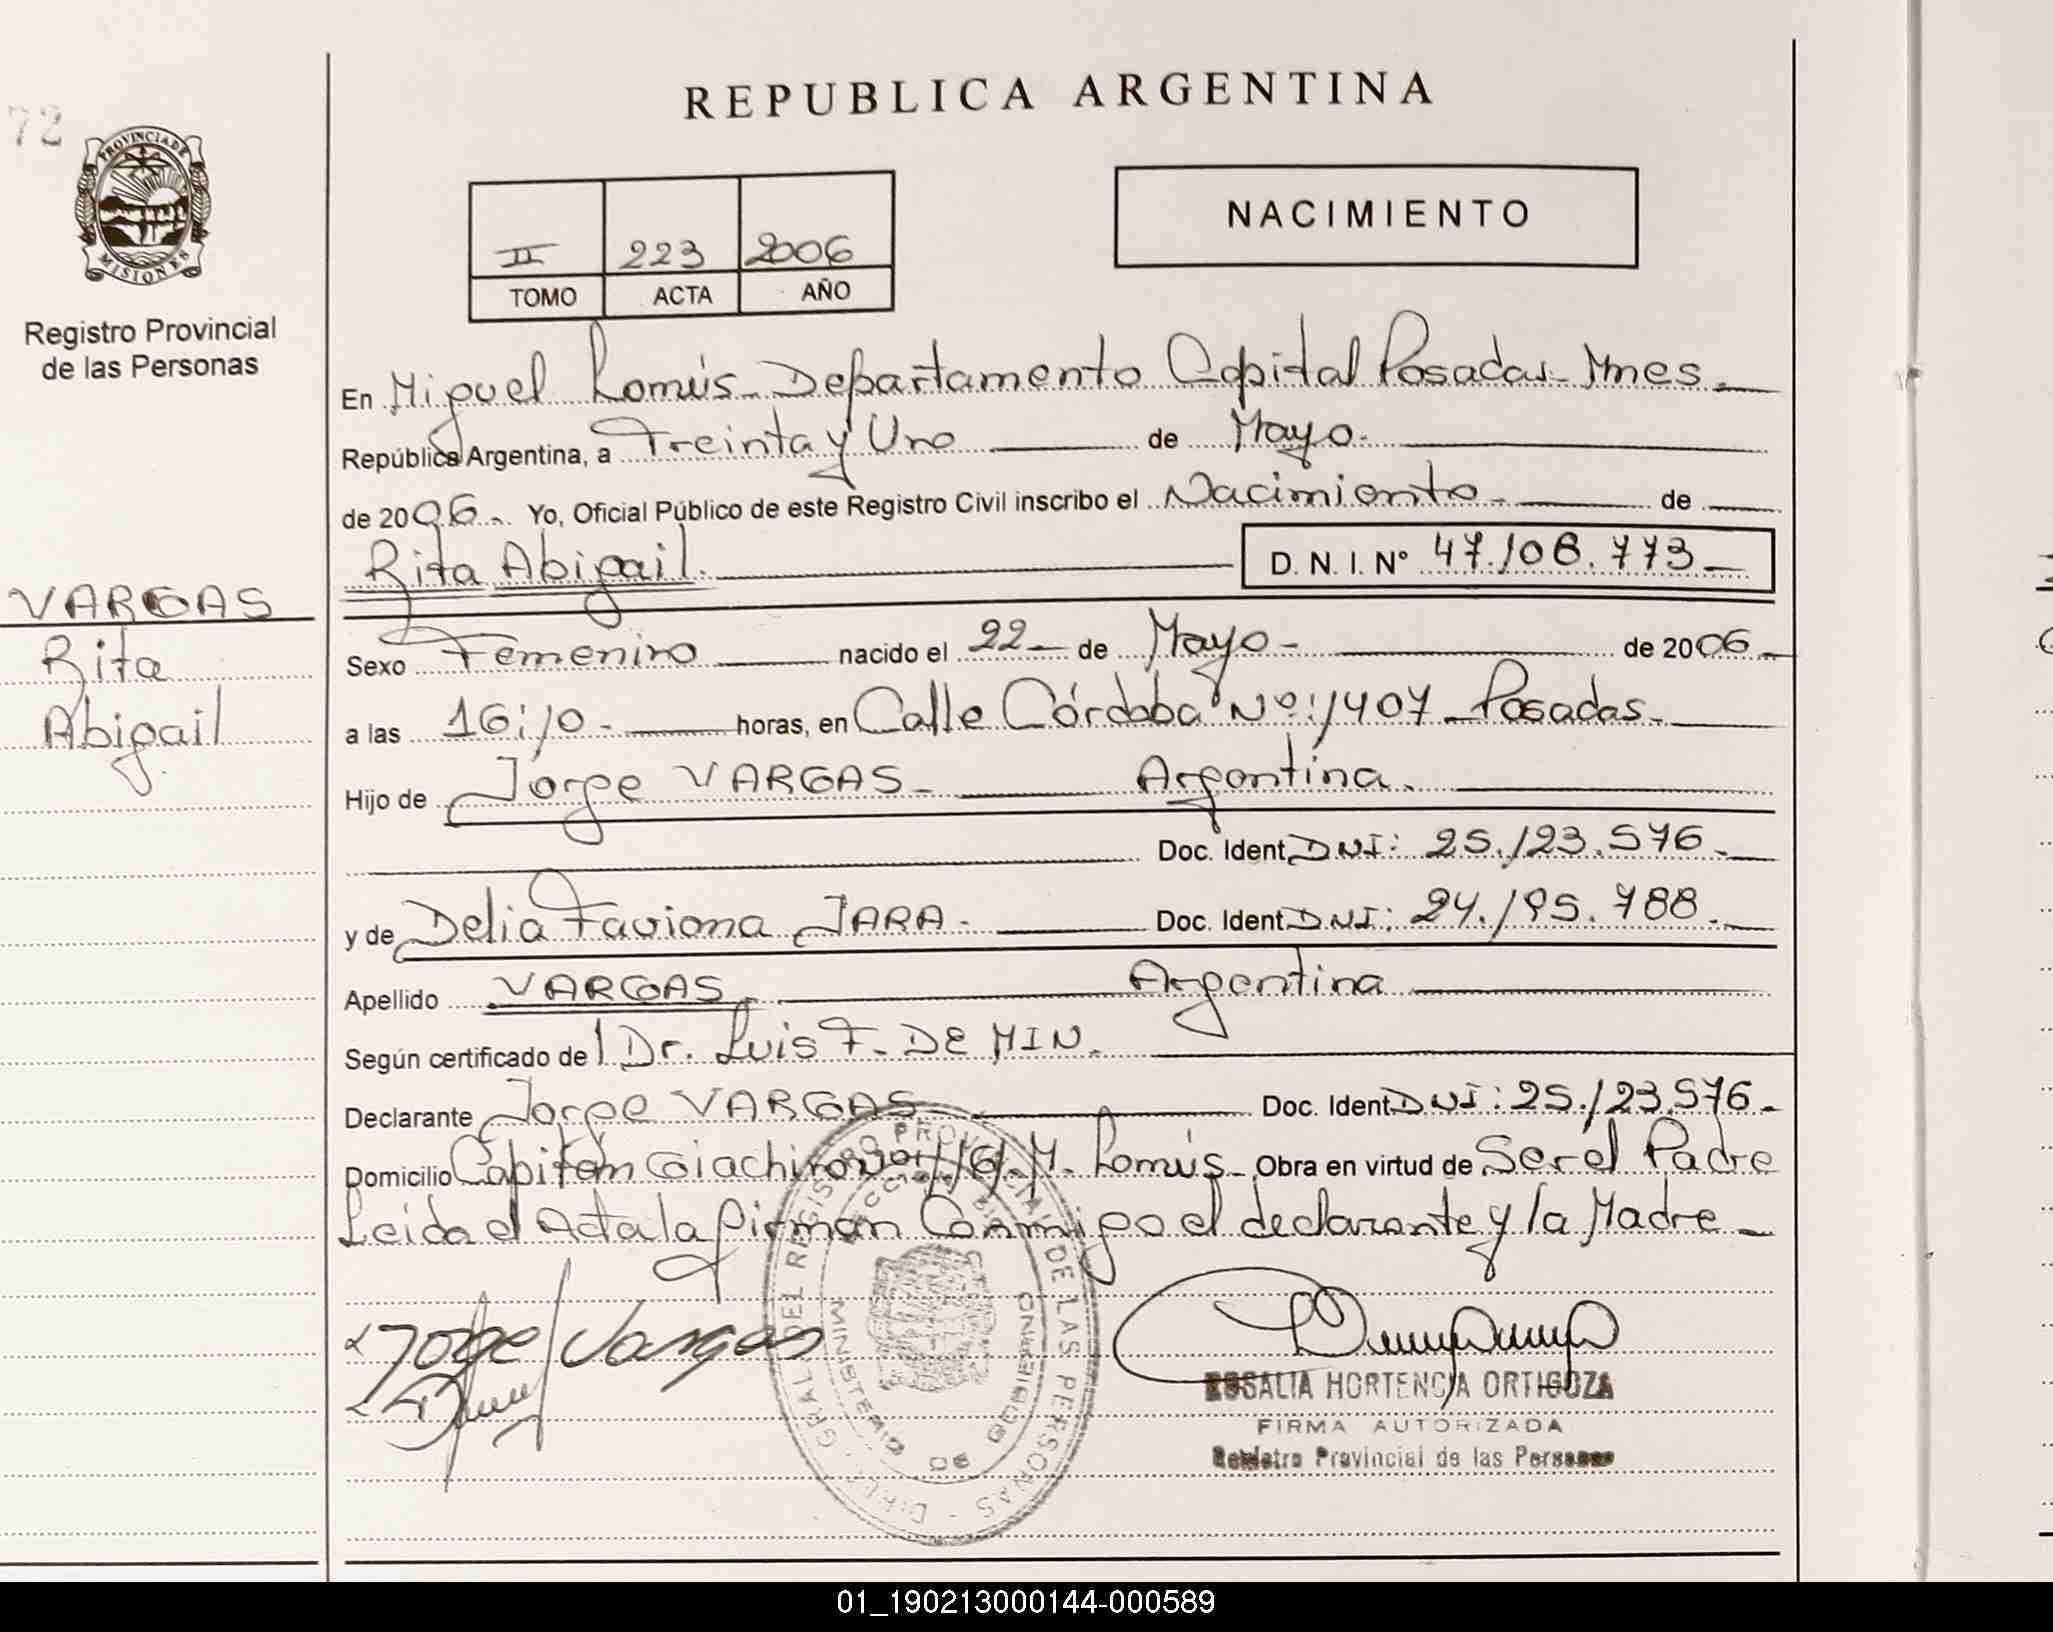 72
PROVINCIA DE
MISIONES
Registro Provincial
de las Personas
VARGAS
Rita
Abigail
REPUBLICA ARGENTINA
II 223 2006
TOMO ACTA AÑO
NACIMIENTO
En Miguel Lanús - Departamento Capital Posadas - Mnes.
República Argentina, a Treinta y Uno de Mayo.
de 2006. Yo, Oficial Público de este Registro Civil inscribo el Nacimiento. de
Rita Abigail. D. N. I. Nº 47.108.773
Sexo Femenino nacido el 22 de Mayo - de 2006
a las 16:10. horas, en Calle Córdoba Nº: 1407 - Posadas.
Hijo de Jorge VARGAS - Argentina.
Doc. Ident DNI: 25.123.576.
y de Delia Faviana JARA - Doc. Ident DNI: 24.195.788.
Apellido VARGAS. Argentina
Según certificado de l Dr. Luis F. DE MIN.
Declarante Jorge VARGAS Doc. Ident DNI: 25.123.576
Domicilio Capitan Giachino Lanús - Obra en virtud de Ser el Padre
Leida el Acta la firman Conmigo el declarante y la Madre
Jorge Vargas
DEL REGISTRO PROVINCIAL DE LAS PERSONAS
MINISTERIO DE GOBIERNO
ROSALIA HORTENCIA ORTIGOZA
FIRMA AUTORIZADA
Registro Provincial de las Personas
01_190213000144-000589